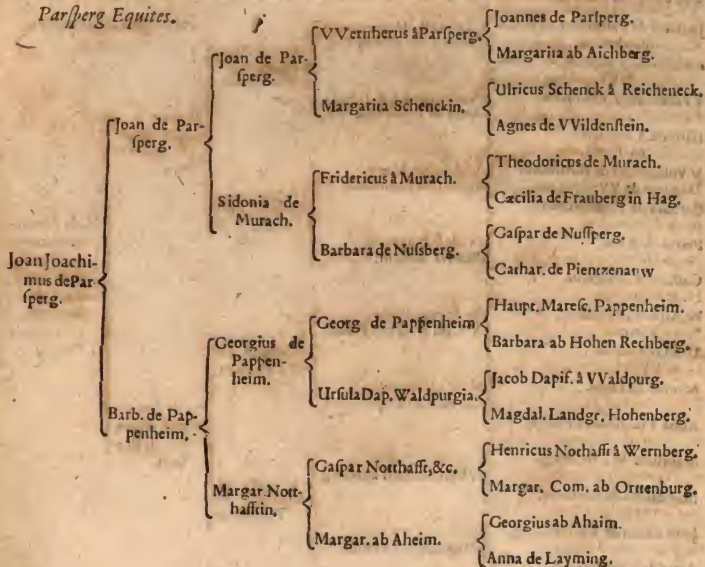 Parſperg Equites.
Joan Joachi-
mus de Par
ſperg.
Joan de Par-
ſperg.
Barb. de Pap-
penheim.
Joan de Par-
ſperg.
Sidonia de
Murach.
Georgius de
Pappen-
heim.
Margar. Nott-
hafftin.
VVernherus â Parſperg.
Margarita Schenckin.
Fridericus â Murach.
Barbara de Nuſsberg.
Georg de Pappenheim
Urſula Dap. Waldpurgia.
Gaſpar Notthafft, &c.
Margar. ab Aheim.
Joannes de Parſperg.
Margarita ab Aichberg.
Ulricus Schenck â Reicheneck.
Agnes de VVildenſtein.
Theodoricus de Murach.
Cæcilia de Frauberg in Hag.
Gaſpar de Nuſſperg.
Cathar. de Pientzenauw
Haupt. Mareſc. Pappenheim.
Barbara ab Hohen Rechberg.
Jacob Dapif. â VValdpurg.
Magdal. Landgr. Hohenberg.
Henricus Nothafft â Wernberg.
Margar. Com. ab Ortenburg.
Georgius ab Ahaim.
Anna de Layming.